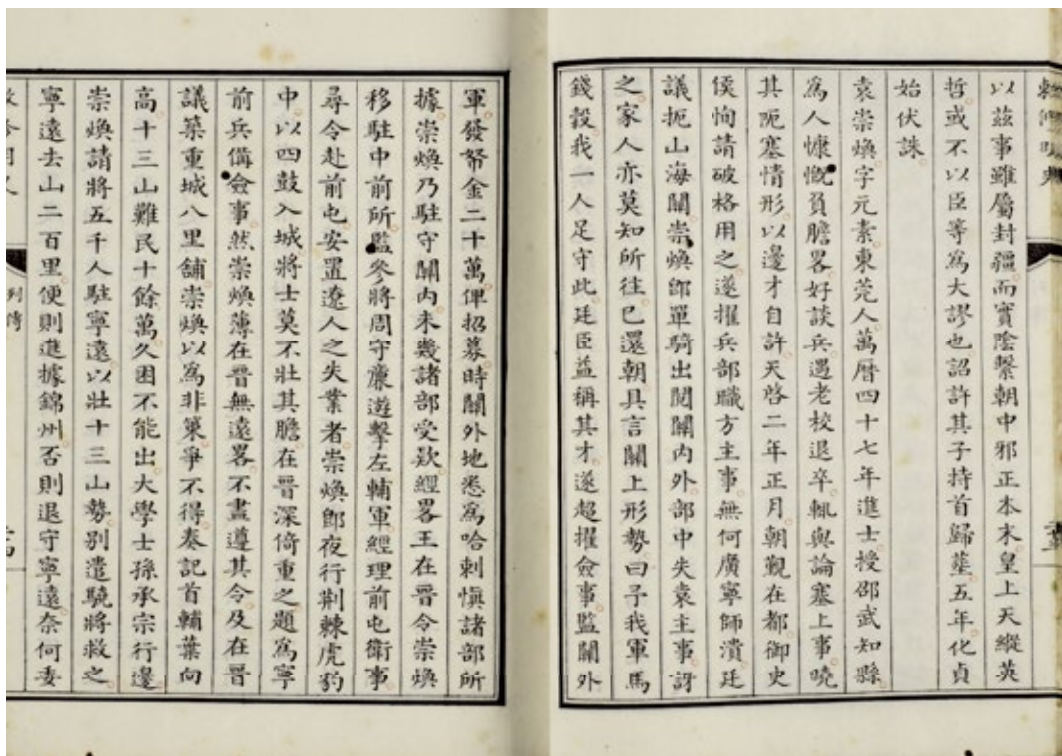 以茲事雖屬封疆而實陰繫朝中邪正本末皇上天縱英
哲或不以臣等為大謬也詔許其子持首歸塟五年化貞
始伏誅
袁崇煥字元素東莞人萬曆四十七年進士授邵武知縣
為人慷慨負膽畧好談兵遇老校退卒輒與論塞上事曉
其阨塞情形以邊才自許天啓二年正月朝覲在都御史
侯恂請破格用之遂擢兵部職方主事無何廣寧師潰廷
議扼山海關崇煥卽單騎出閱關內外部中失袁主事訝
之家人亦莫知所往已還朝具言關上形勢曰予我軍馬
錢穀我一人足守此廷臣益稱其才遂超擢僉事監關外
軍發帑金二十萬俾招募時關外地悉為哈剌慎諸部所
據崇煥乃駐守關內未幾諸部受欵經畧王在晉令崇煥
移駐中前所監參將周守廉遊擊左輔軍經理前屯衛事
尋令赴前屯安置遼人之失業者崇煥卽夜行荆棘虎豹
中以四鼓入城將士莫不壯其膽在晉深倚重之題為寧
前兵備僉事然崇煥薄在晉無遠畧不盡遵其令及在晉
議築重城八里舖崇煥以為非策爭不得奏記首輔葉向
高十三山難民十餘萬久困不能出大學士孫承宗行邊
崇煥請將五千人駐寧遠以壯十三山勢別遣驍將救之
寧遠去山二百里便則進據錦州否則退守寧遠奈何委
列傳